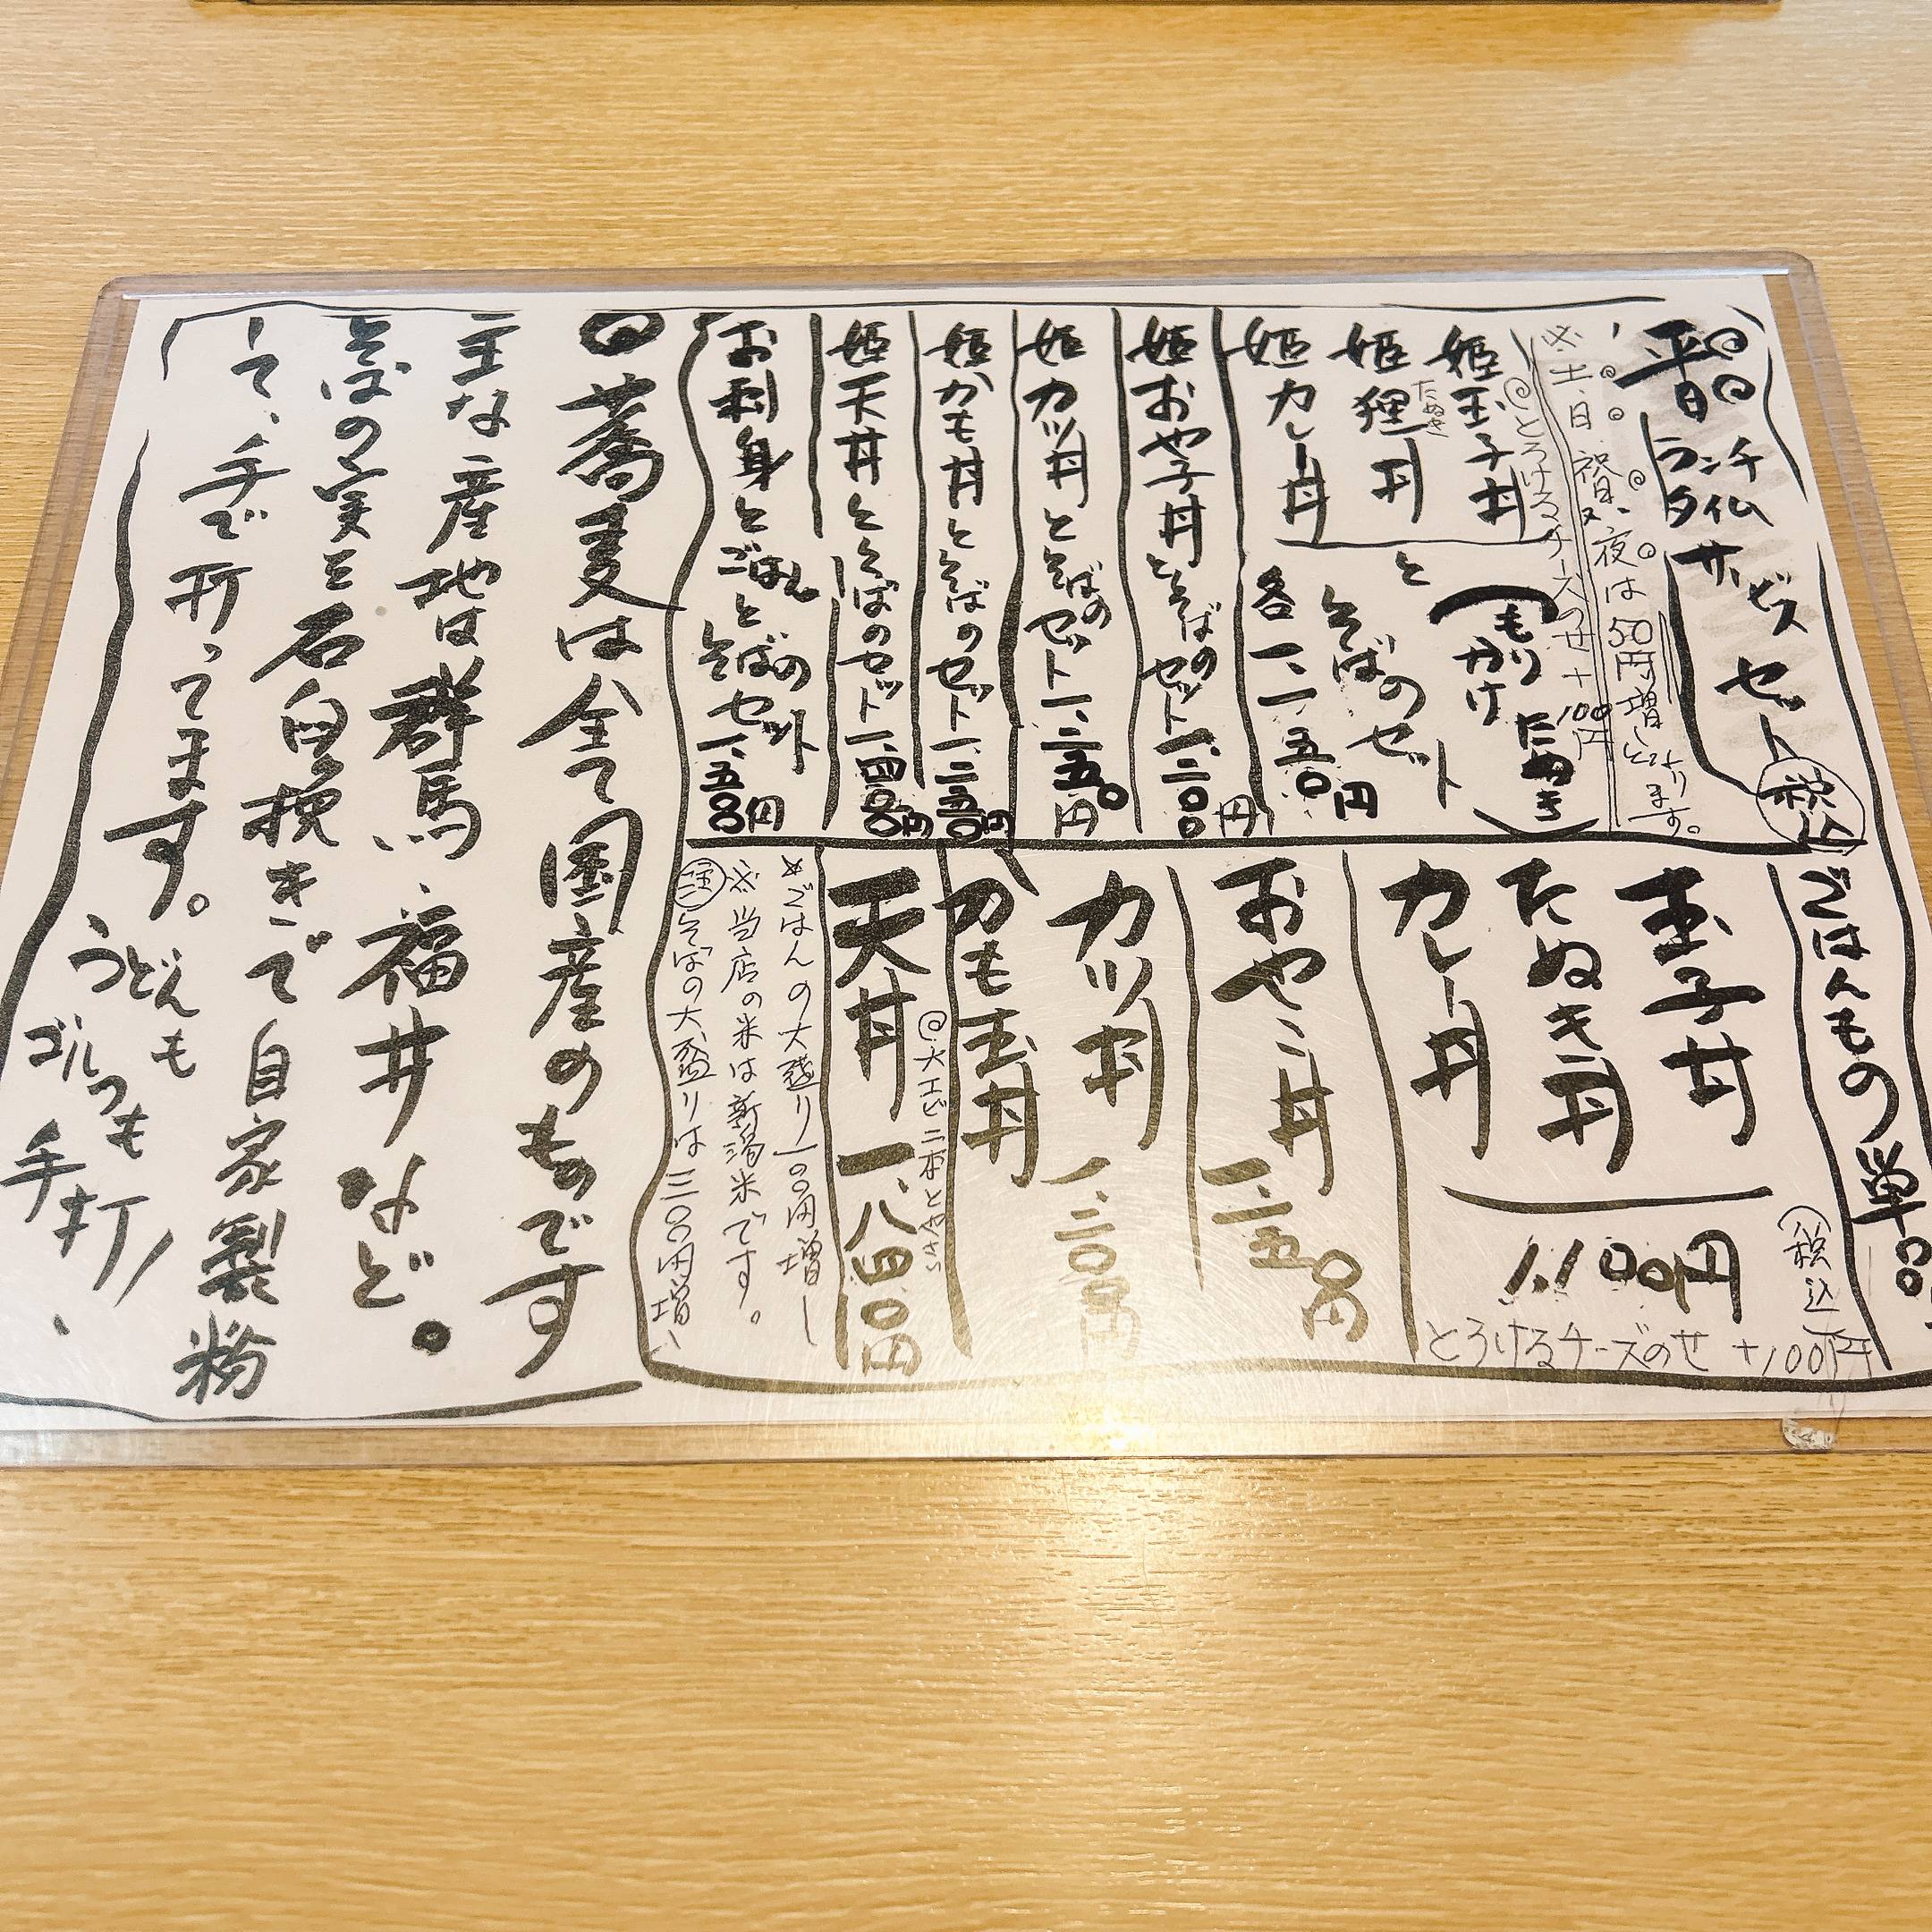 平日ランチタイムサービスセット 税込
※土、日、祝日、又、夜は50円増しとなります。
@とろけるチーズのせ+100円
姫玉子丼
姫狸丼
たぬき
姫カレー丼
と
(もり
かけ
たぬき)
そばのセット
各一、一五〇円
姫おや子丼とそばのセット一、二〇〇円
姫カツ丼とそばのセット一、二五〇円
姫かも丼とそばのセット一、二五〇円
姫天丼とそばのセット一、四〇〇円
お刺身とごはんとそばのセット一、五〇〇円
ごはんもの単品
(税込)
玉子丼
たぬき丼
カレー丼
1,100円
とろけるチーズのせ +100円
おやこ丼 一、一五〇円
カツ丼 一、二〇〇円
かも玉丼
@大エビ二本とやさい
天丼 一、八四〇円
※ごはんの大盛り一〇〇円増し
※当店の米は新潟米です。
そばの大盛りは三〇〇円増
蕎麦は全て国産のものです
主な産地は群馬、福井など。
そばの実を石臼挽きで自家製粉
して、手で打ってます。
うどんも
手打